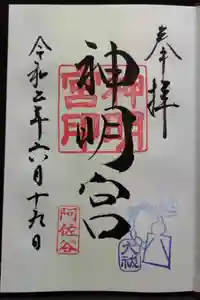 奉拝
神明宮
神明宮
令和三年六月十九日
阿佐谷
大祓